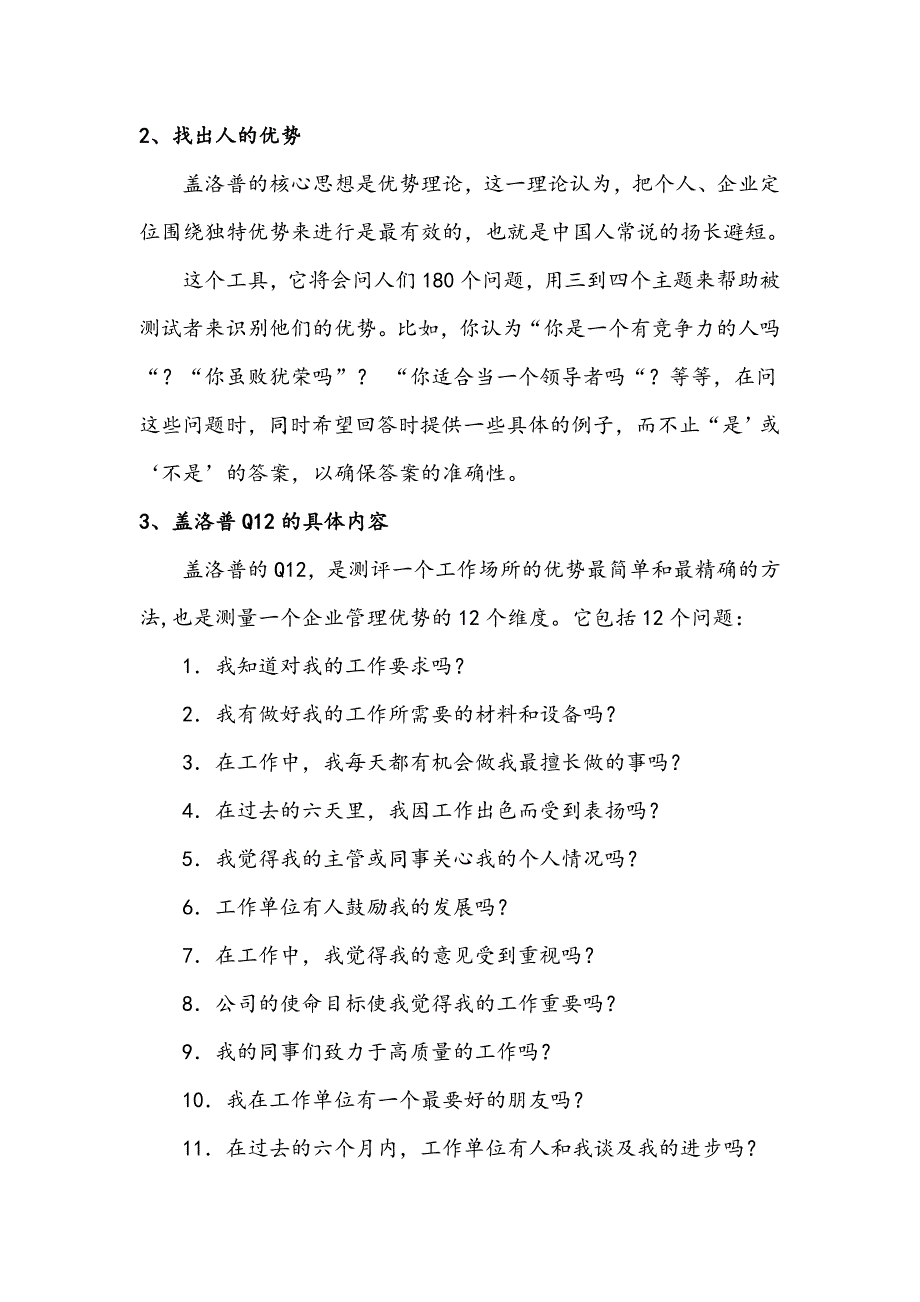 2、找出人的优势
盖洛普的核心思想是优势理论，这一理论认为，把个人、企业定
位围绕独特优势来进行是最有效的，也就是中国人常说的扬长避短。
这个工具，它将会问人们180个问题，用三到四个主题来帮助被
测试者来识别他们的优势。比如，你认为“你是一个有竞争力的人吗
“？“你虽败犹荣吗”？ “你适合当一个领导者吗“？等等，在问
这些问题时，同时希望回答时提供一些具体的例子，而不止“是’或
‘不是’的答案，以确保答案的准确性。
3、盖洛普Q12的具体内容
盖洛普的Q12，是测评一个工作场所的优势最简单和最精确的方
法,也是测量一个企业管理优势的12个维度。它包括12个问题：
1．我知道对我的工作要求吗？
2．我有做好我的工作所需要的材料和设备吗？
3．在工作中，我每天都有机会做我最擅长做的事吗？
4．在过去的六天里，我因工作出色而受到表扬吗？
5．我觉得我的主管或同事关心我的个人情况吗？
6．工作单位有人鼓励我的发展吗？
7．在工作中，我觉得我的意见受到重视吗？
8．公司的使命目标使我觉得我的工作重要吗？
9．我的同事们致力于高质量的工作吗？
10．我在工作单位有一个最要好的朋友吗？
11．在过去的六个月内，工作单位有人和我谈及我的进步吗？